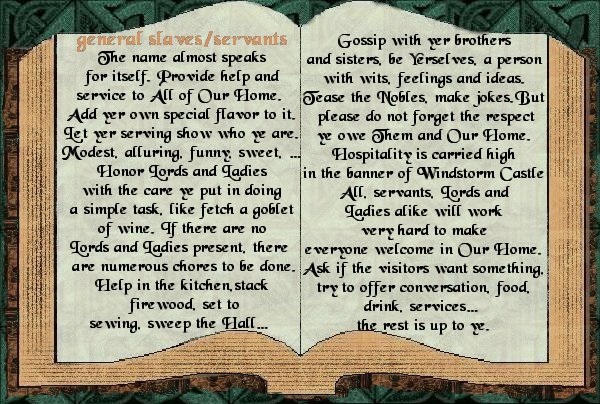 general slaves/servants
The name almost speaks
for itself. Provide help and
service to All of Our Home.
Add yer own special flavor to it.
Let yer serving show who ye are.
Modest, alluring, funny, sweet, ...
Honor Lords and Ladies
with the care ye put in doing
a simple task, like fetch a goblet
of wine. If there are no
Lords and Ladies present, there
are numerous chores to be done.
Help in the kitchen,stack
firewood, set to
sewing, sweep the Hall...
Gossip with yer brothers
and sisters, be Yerselves, a person
with wits, feelings and ideas.
Tease the Nobles, make jokes.But
please do not forget the respect
ye owe Them and Our Home.
Hospitality is carried high
in the banner of Windstorm Castle
All, servants, Lords and
Ladies alike will work
very hard to make
everyone welcome in Our Home.
Ask if the visitors want something,
try to offer conversation, food,
drink, services...
the rest is up to ye.